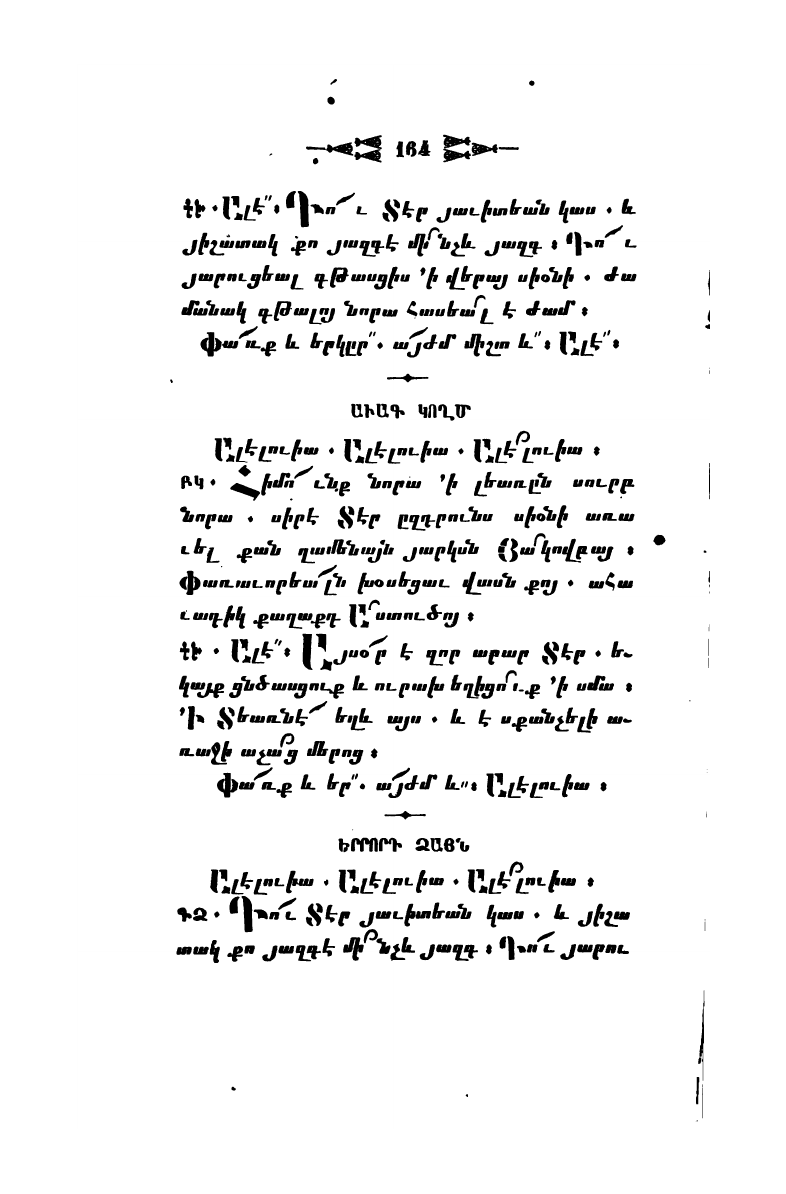 164
ԷԻ․ Ալէ՟։ Դո՛ւ Տէր յաւիտեան կաս․ և
յիշատակ քո յազգէ մի՞նչև յազգ։ Դո՛ւ
յարուցեալ գթասցիս ՚ի վերայ սիօնի․ ժա
մանակ գթալոյ նորա հասեա՞լ է ժամ։
Փա՛ռք և երկըր՟․ ա՛յժմ միշտ և՟։ Ալէ՟։
ԱՒԱԳ ԿՈՂՄ
Ալէլուիա․ Ալէլուիա․ Ալէ՞լուիա։
ԲԿ․ Հիմո՛ւնք նորա ՚ի լեառըն սուրբ
նորա․ սիրէ Տէր ըզդրունս սիօնի առա
ւել քան զամենայն յարկսն Յա՞կովբայ։
Փառաւորեա՛լն խօսեցաւ վասն քոյ․ ահա
ւադիկ քաղաքդ Ա՞ստուծոյ։
ԷԻ․ Ալէ՟։ Այսօ՛ր է զոր արար Տէր․ ե֊
կայք ցնծասցուք և ուրախ եղիցո՞ւք ՚ի սմա։
՚Ի Տեառնէ՛ եղև այս․ և է սքանչելի ա֊
ռաջի աչա՞ց մերոց։
Փա՛ռք և եր՟․ ա՛յժմ և՟։ Ալէլուիա։
ԵՐՐՈՐԴ ՁԱՅՆ
Ալէլուիա․ Ալէլուիա․ Ալէ՞լուիա։
ԳՁ․ Դո՛ւ Տէր յաւիտեան կաս․ և յիշա
տակ քո յազգէ մի՞նչև յազգ։ Դո՛ւ յարու